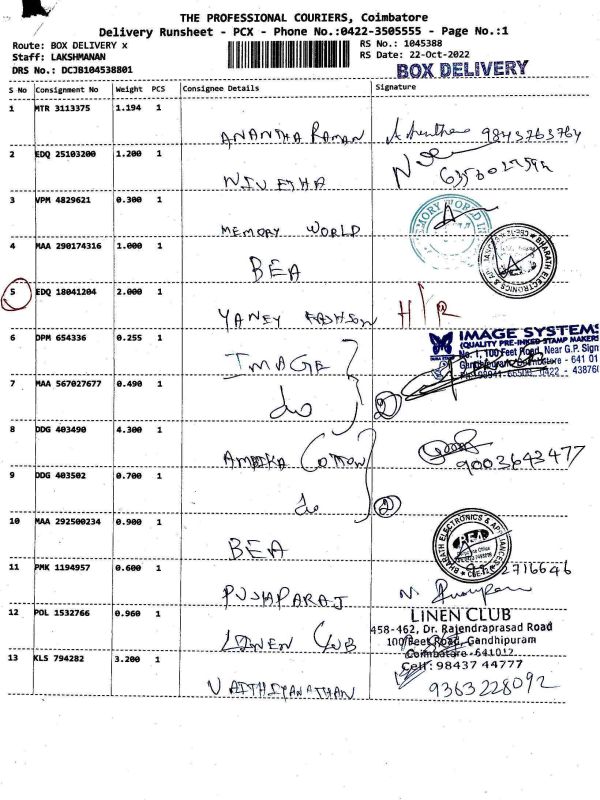 THE PROFESSIONAL COURIERS, Coimbatore
Delivery Runsheet - PCX - Phone No.:0422-3505555 - Page No.:1
Route: BOX DELIVERY x
RS No.: 1045388
Staff: LAKSHMANAN
RS Date: 22-Oct-2022
DRS No.: DCJB104538801
BOX DELIVERY
S No Consignment No Weight PCS Consignee Details Signature
1 MTR 3113375 1.194 1
ANANTHA RAMAN 9843763764
2 EDQ 25103200 1.200 1
NIVETHA
3 VPM 4829621 0.300 1
MEMORY WORLD
4 MAA 290174316 1.000 1
BEA
BHARATH ELECTRONICS &
5 EDQ 18041204 2.000 1
H/R
6 DPM 654336 0.255 1
IMAGE
IMAGE SYSTEMS
(QUALITY PRE-INKED STAMP MAKERS
No. 1, 100 Feet Road, Near G.P. Sign
7 MAA 567027677 0.490 1
do 2
8 DDG 403490 4.300 1
AMBIKA COTTON
9003643477
9 DDG 403502 0.700 1
do 2
10 MAA 292500234 0.900 1
BEA
BHARATH ELECTRONICS & APPLIANCES
BEA
11 PMK 1194957 0.600 1
PUSHPARAJ
12 POL 1532766 0.960 1
LINEN CLUB
LINEN CLUB
458-462, Dr. Rajendraprasad Road
100 Feet Road, Gandhipuram
Coimbatore - 641012
Cell: 98437 44777
13 KLS 794282 3.200 1
VAITHIYANATHAN 9363228092